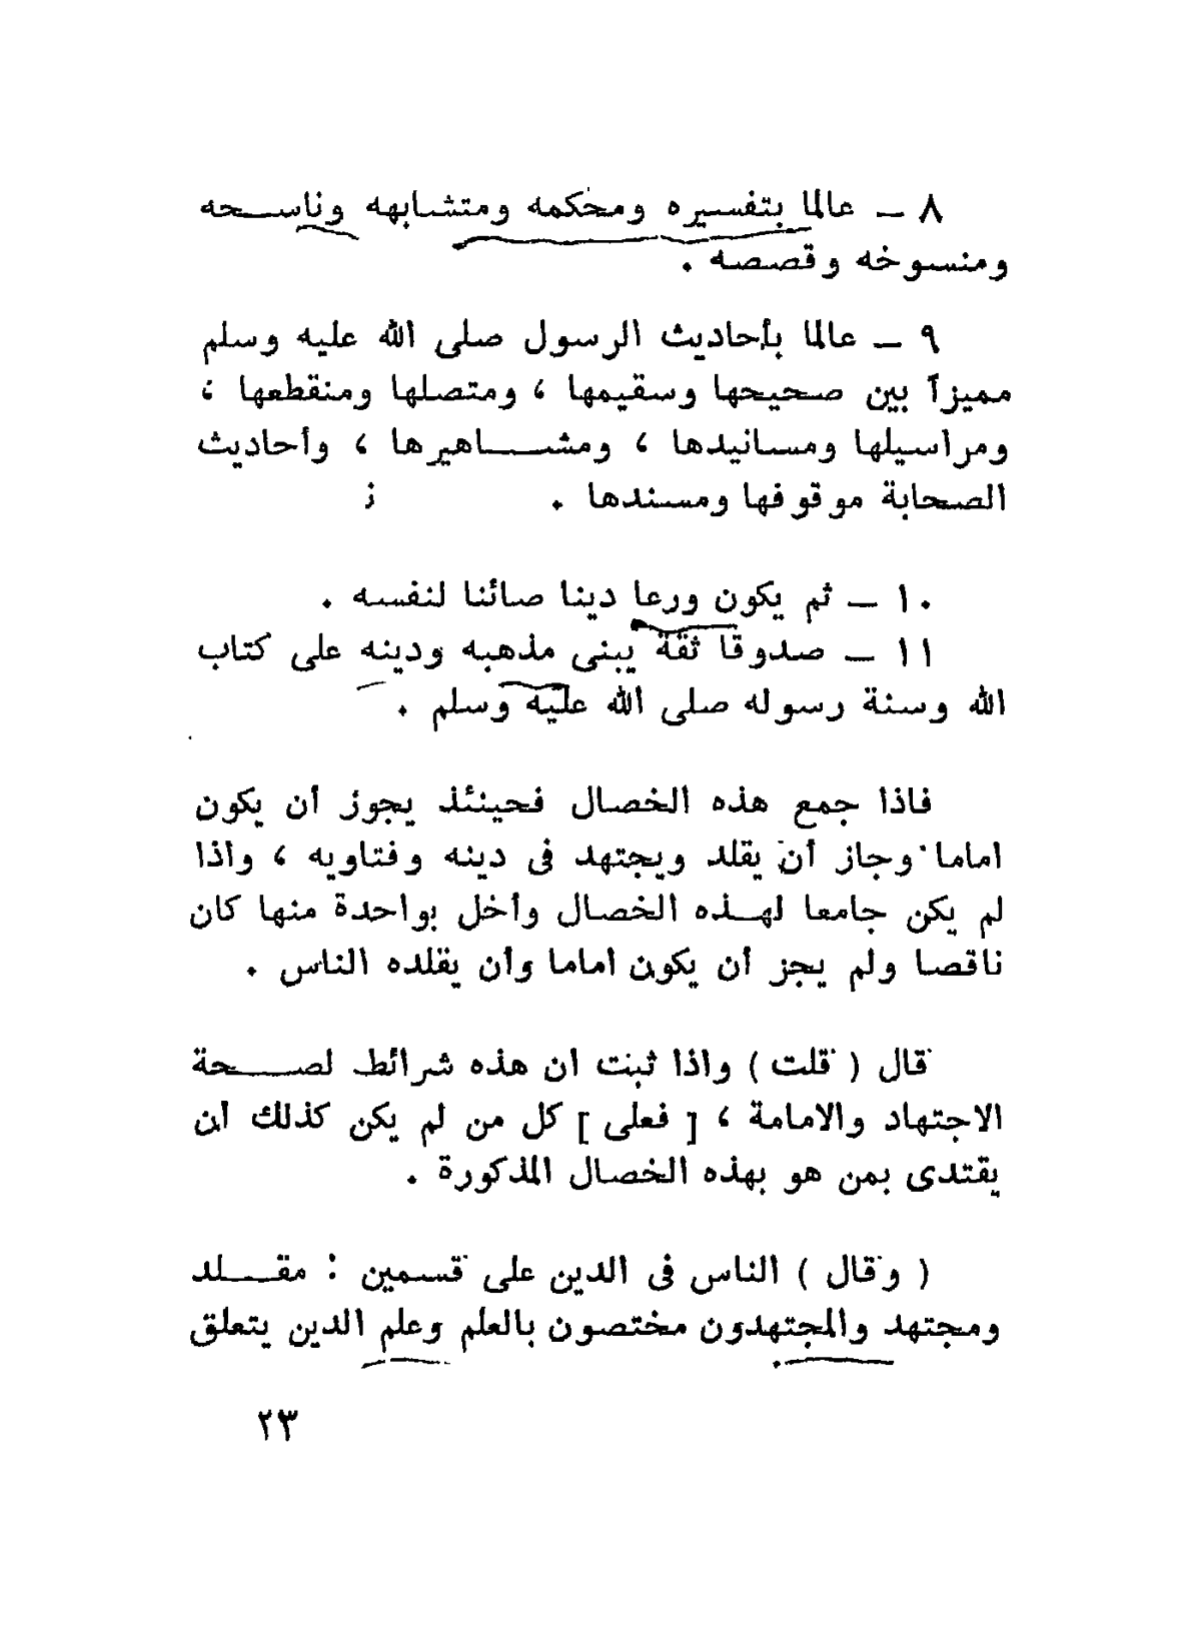 ٨ ــ عالما بتفسيره ومحكمه ومتشابهه وناسـخه
ومنسوخه وقصصه .
٩ ــ عالما بأحاديث الرسول صلى الله عليه وسلم
مميزاً بين صحيحها وسقيمها ، ومتصلها ومنقطعها ،
ومراسيلها ومسانيدها ، ومشـــاهيرها ، وأحاديث
الصحابة موقوفها ومسندها .
١٠ ــ ثم يكون ورعا دينا صائنا لنفسه .
١١ ــ صدوقا ثقة يبنى مذهبه ودينه على كتاب
الله وسنة رسوله صلى الله عليه وسلم .
فاذا جمع هذه الخصال فحينئذ يجوز أن يكون
اماما وجاز أن يقلد ويجتهد فى دينه وفتاويه ، واذا
لم يكن جامعا لهـذه الخصال وأخل بواحدة منها كان
ناقصا ولم يجز أن يكون اماما وأن يقلده الناس .
قال ( قلت ) واذا ثبنت ان هذه شرائط لصـــحة
الاجتهاد والامامة ، [ فعلى ] كل من لم يكن كذلك أن
يقتدى بمن هو بهذه الخصال المذكورة .
( وقال ) الناس فى الدين على قسمين : مقـــلد
ومجتهد والمجتهدون مختصون بالعلم وعلم الدين يتعلق
٢٣